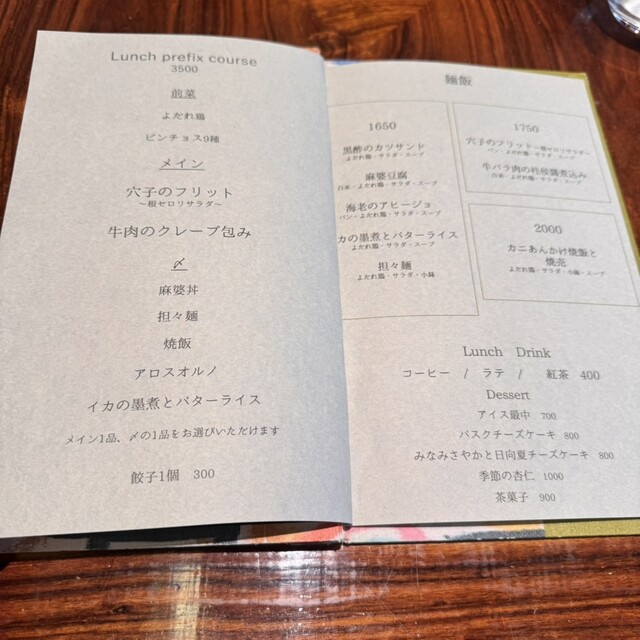 Lunch prefix course
3500
前菜
よだれ鶏
ピンチョス9種
メイン
穴子のフリット
～根セロリサラダ～
牛肉のクレープ包み
〆
麻婆丼
担々麺
焼飯
アロスオルノ
イカの墨煮とバターライス
メイン1品、〆の1品をお選びいただけます
餃子1個 300
麺飯
1650
黒酢のカツサンド
よだれ鶏・サラダ・スープ
麻婆豆腐
白米・よだれ鶏・サラダ・スープ
海老のアヒージョ
パン・よだれ鶏・サラダ・スープ
カの墨煮とバターライス
よだれ鶏・サラダ・スープ
担々麺
よだれ鶏・サラダ・小鉢
1750
穴子のフリット～根セロリサラダ～
パン・よだれ鶏・サラダ・スープ
牛バラ肉の柱侯醬煮込み
白米・よだれ鶏・サラダ・スープ
2000
カニあんかけ焼飯と
焼売
よだれ鶏・サラダ・小鉢・スープ
Lunch Drink
コーヒー / ラテ / 紅茶 400
Dessert
アイス最中 700
バスクチーズケーキ 800
みなみさやかと日向夏チーズケーキ 800
季節の杏仁 1000
茶菓子 900